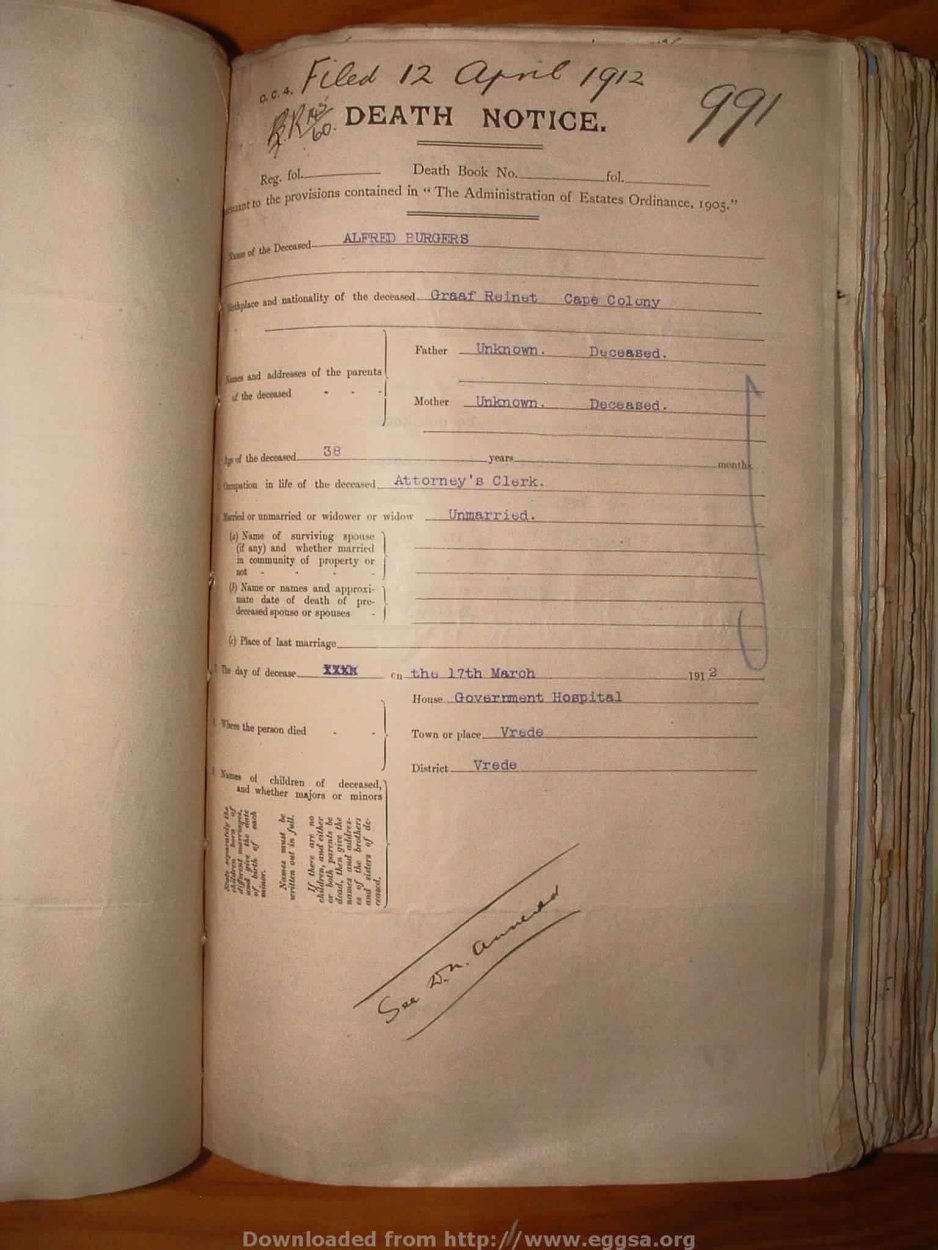 O. C. 4. Filed 12 April 1912
991
DEATH NOTICE.
Reg. fol. Death Book No. fol.
to the provisions contained in “ The Administration of Estates Ordinance, 1905.”
Name of the Deceased ALFRED BURGERS
Birthplace and nationality of the deceased Graaf Reinet Cape Colony
Father Unknown. Deceased.
Names and addresses of the parents
of the deceased - - -
Mother Unknown. Deceased.
Age of the deceased 38 years months
Occupation in life of the deceased Attorney's Clerk.
Married or unmarried or widower or widow Unmarried.
(a) Name of surviving spouse
(if any) and whether married
in community of property or
not - - - -
(b) Name or names and approxi-
mate date of death of pre-
deceased spouse or spouses -
(c) Place of last marriage
The day of decease XXXX on the 17th March 1912
House Government Hospital
Where the person died - -
Town or place Vrede
District Vrede
Names of children of deceased,
and whether majors or minors
State separately the
children born of
different marriages,
and give the date
of birth of each
minor.
Names must be
written out in full.
If there are no
children, and either
or both parents be
dead, then give the
names and address-
es of the brothers
and sisters of de-
ceased.
See D.N. annexed
Downloaded from http://www.eggsa.org